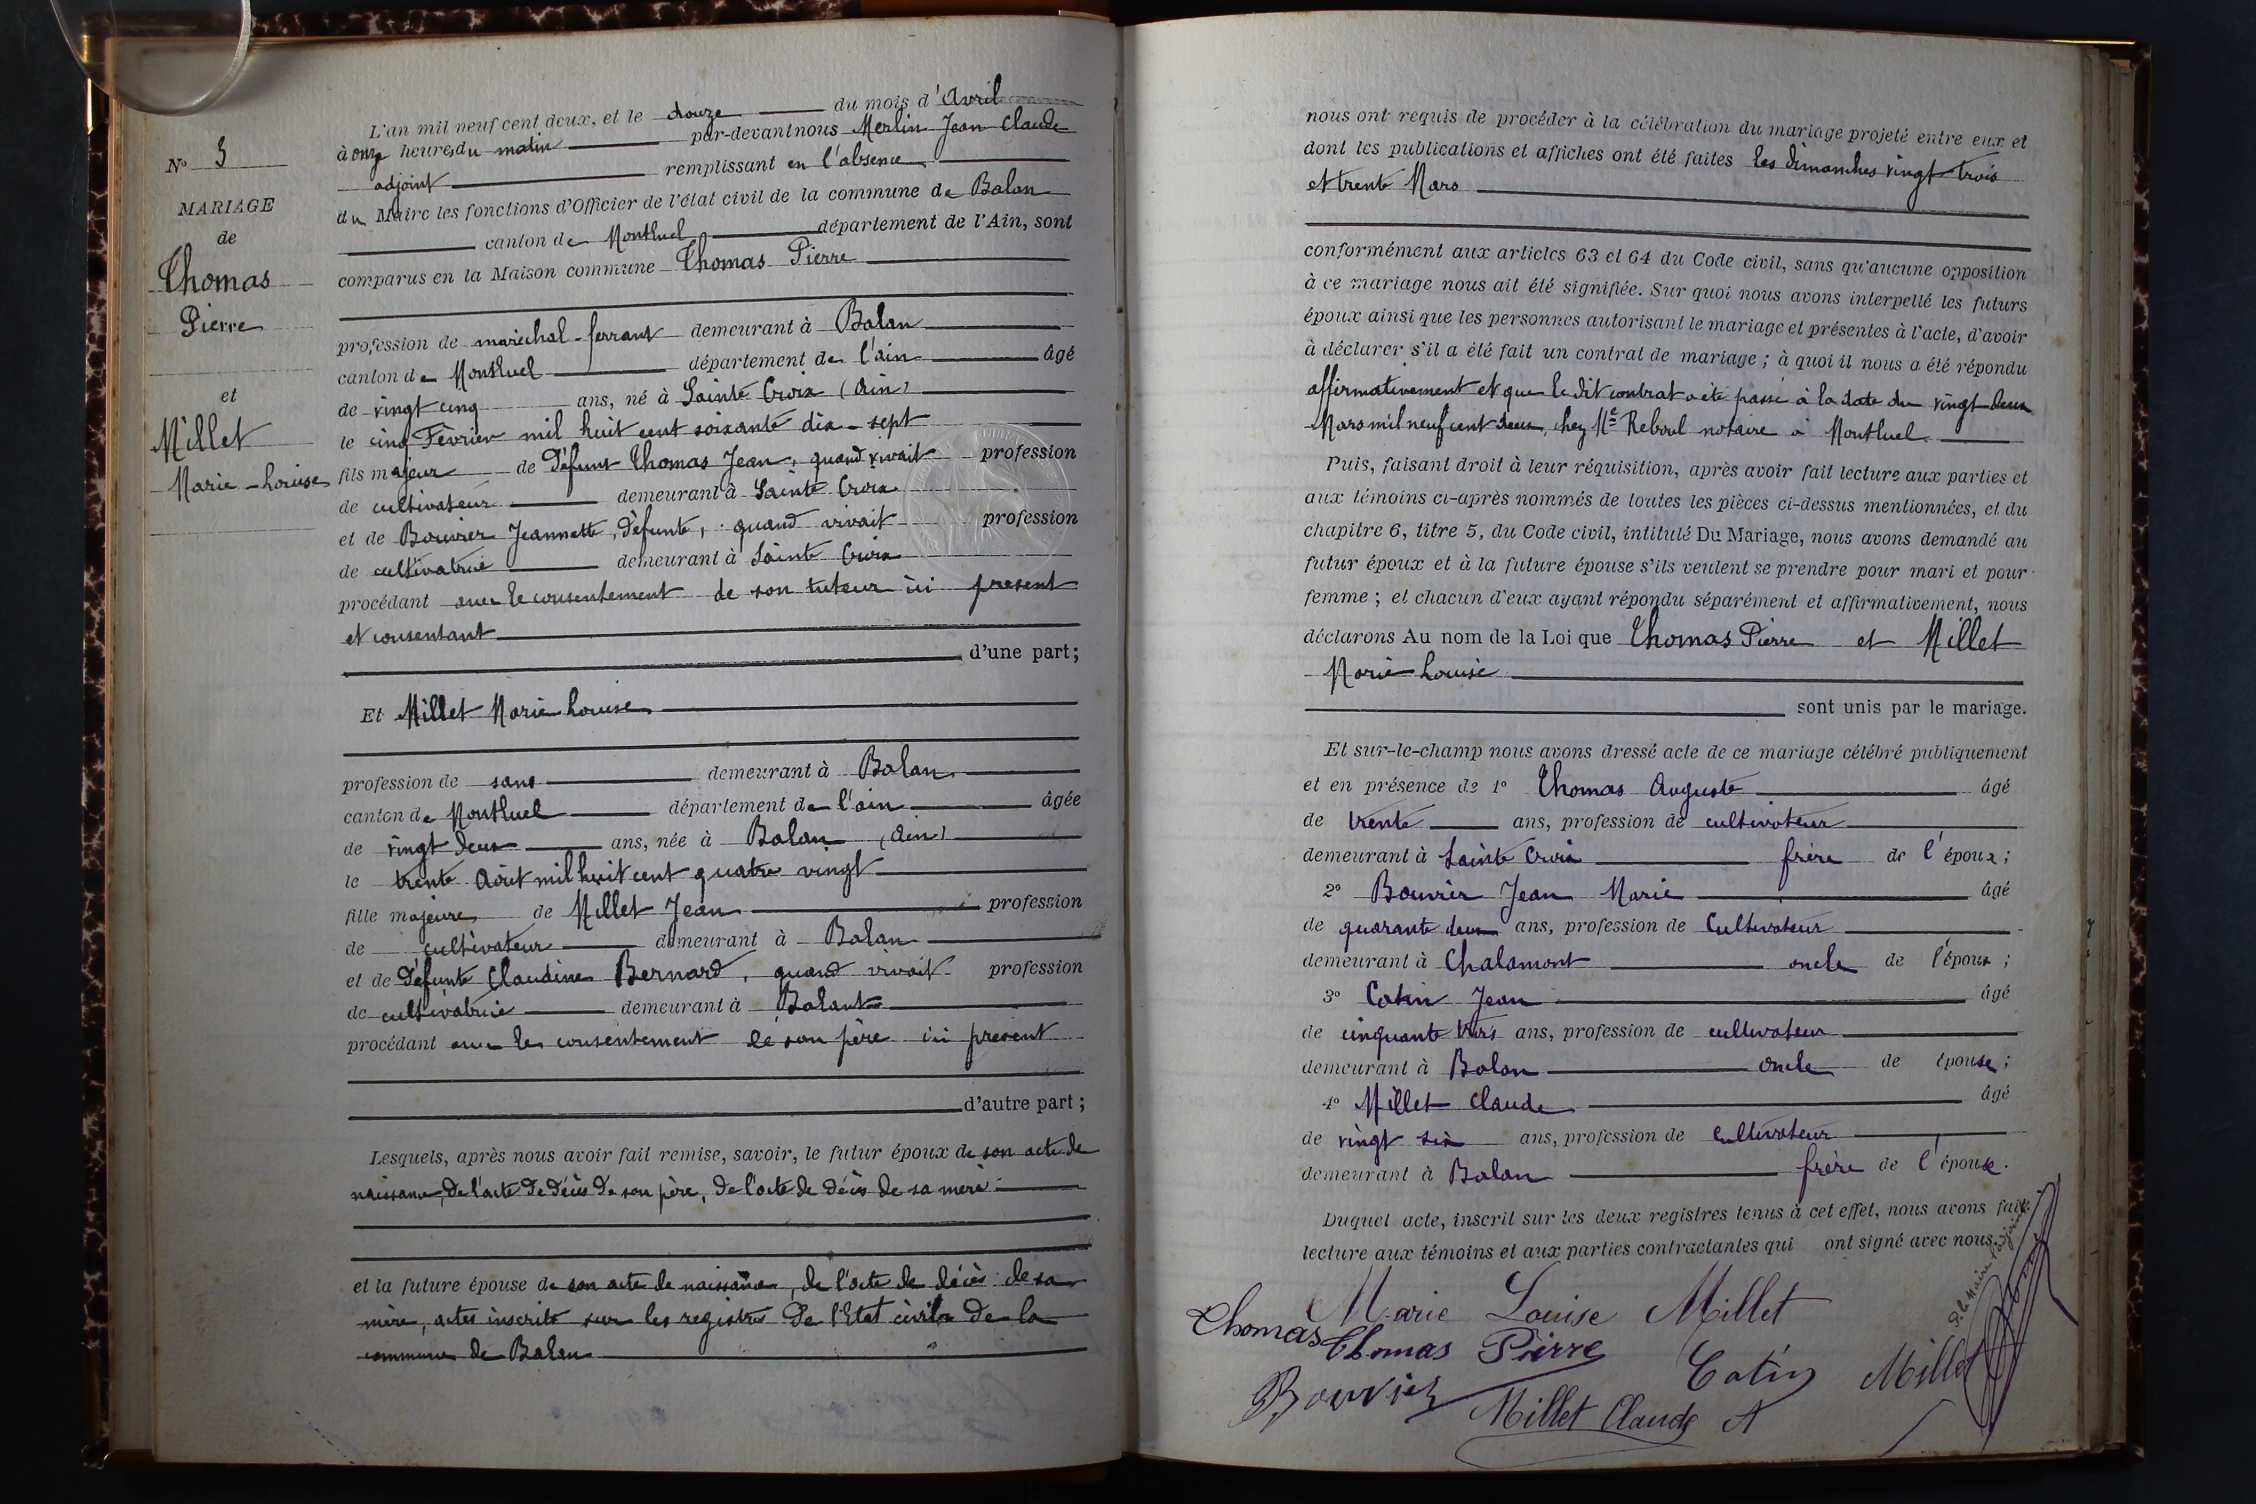 N° 3
MARIAGE
de
Thomas
Pierre
et
Millet
Marie-Louise
L'an mil neuf cent deux, et le douze du mois d'Avril
à onze heures du matin par-devant nous Merlin Jean Claude
adjoint remplissant en l'absence
du Maire les fonctions d'Officier de l'état civil de la commune de Balan
canton de Montluel département de l'Ain, sont
comparus en la Maison commune Thomas Pierre
profession de maréchal-ferrant demeurant à Balan
canton de Montluel département de l'ain âgé
de vingt cinq ans, né à Sainte Croix (Ain)
le cinq Février mil huit cent soixante dix-sept
fils majeur de Défunt Thomas Jean, quand vivait profession
de cultivateur demeurant à Sainte Croix
et de Bouvier Jeannette, défunte, quand vivait profession
de cultivatrice demeurant à Sainte Croix
procédant avec le consentement de son tuteur ici présent
et consentant
d'une part;
Et Millet Marie Louise
profession de sans demeurant à Balan
canton de Montluel département de l'ain âgée
de vingt deux ans, née à Balan (Ain)
le trente Août mil huit cent quatre vingt
fille majeure de Millet Jean profession
de cultivateur demeurant à Balan
et de défunte Claudine Bernard, quand vivait profession
de cultivatrice demeurant à Balant
procédant avec le consentement de son père ici présent
d'autre part;
Lesquels, après nous avoir fait remise, savoir, le futur époux de son acte de
naissance, de l'acte de décès de son père, de l'acte de décès de sa mère
et la future épouse de son acte de naissance, de l'acte de décès de sa
mère, actes inscrits sur les registres de l'Etat civil de la
commune de Balan
nous ont requis de procéder à la célébration du mariage projeté entre eux et
dont les publications et affiches ont été faites les dimanches vingt-trois
et trente Mars
conformément aux articles 63 et 64 du Code civil, sans qu'aucune opposition
à ce mariage nous ait été signifiée. Sur quoi nous avons interpellé les futurs
époux ainsi que les personnes autorisant le mariage et présentes à l'acte, d'avoir
à déclarer s'il a été fait un contrat de mariage; à quoi il nous a été répondu
affirmativement et que le dit contrat a été passé à la date du vingt deux
Mars mil neuf cent deux, chez Me Reboul notaire à Montluel
Puis, faisant droit à leur réquisition, après avoir fait lecture aux parties et
aux témoins ci-après nommés de toutes les pièces ci-dessus mentionnées, et du
chapitre 6, titre 5, du Code civil, intitulé Du Mariage, nous avons demandé au
futur époux et à la future épouse s'ils veulent se prendre pour mari et pour
femme; et chacun d'eux ayant répondu séparément et affirmativement, nous
déclarons Au nom de la Loi que Thomas Pierre et Millet
Marie Louise
sont unis par le mariage.
Et sur-le-champ nous avons dressé acte de ce mariage célébré publiquement
et en présence de 1° Thomas Auguste âgé
de trente ans, profession de cultivateur
demeurant à Sainte Croix frère de l'époux;
2° Bouvier Jean Marie âgé
de quarante deux ans, profession de Cultivateur
demeurant à Chalamont oncle de l'époux;
3° Cotin Jean âgé
de cinquante trois ans, profession de cultivateur
demeurant à Balan oncle de épouse;
4° Millet Claude âgé
de vingt six ans, profession de Cultivateur
demeurant à Balan frère de l'épouse.
Duquel acte, inscrit sur les deux registres tenus à cet effet, nous avons fait
lecture aux témoins et aux parties contractantes qui ont signé avec nous.
P. le Maire l'adjoint
Marie Louise Millet
Thomas Thomas Pierre Cotin Millet
Bouvier Millet Claude